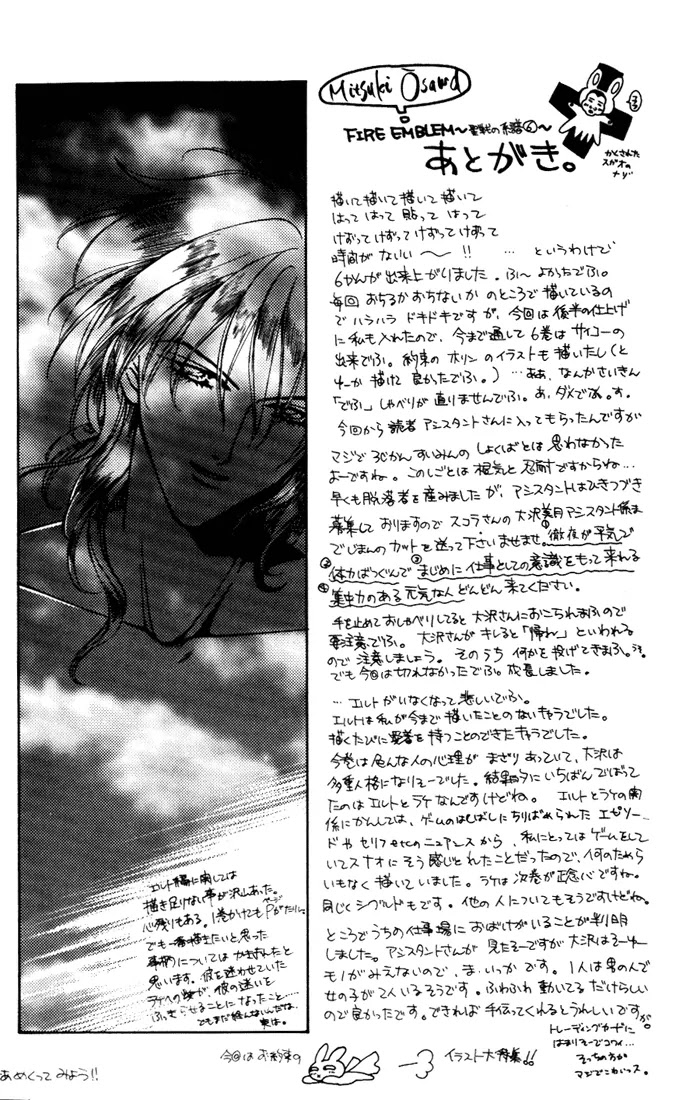 Mitsuki Ōsawa
FIRE EMBLEM～聖戦の系譜⑥～
あとがき。
かくされた
スガオの
ナゾ
描いて描いて描いて描いて
はって はって 貼って はって
けずってけずってけずってけずって
時間がないぃ〜〜!! … というわけで
6かんが出来上がりました。ふ〜 よかったでふ。
毎回 おちるか おちないか のところで 描いているの
で ハラハラ ドキドキ ですが、今回は 後半の仕上げ
に 私も入れたので、今まで通して 6巻は サイコーの
出来でふ。約束の ホリン のイラストも 描いたし(と
ゆーか 描けて 良かったでふ。) …ああ、なんかさいきん
「でふ」しゃべりが 直りませんでふ。あ、ダメでふね。す。
今回から 読者 アシスタントさんに入ってもらったんですが
マジで 3じかんすいみんの しょくばとは 思わなかった
よーですね。このしごとは 根気と 忍耐ですからね…
早くも脱落者を産みましたが、アシスタントはひきつづき
募集して おりますので スコラさんの 大沢美月アシスタント係ま
でじまんの カットを 送って下さいませませ ①徹夜が平気で
②体力ばつぐんで ③まじめに 仕事としての 意識をもって 来れる
④集中力のある 元気な人 どんどん 来てください。
手を止めて おしゃべりしてると 大沢さんに おこられまふので
要注意でふ。大沢さんが キレると「帰れ」といわれる
ので 注意しましょう。そのうち 何かを投げてきまふ。うそ。
でも 今回は切れなかったでふ。成長しました。
… エルトがいなくなって 悲しいでふ。
エルトは 私が今まで 描いたことのないキャラでした。
描くたびに 愛着を 持つことのできたキャラでした。
今巻は 色んな人の心理が まざりあっていて、大沢は
多重人格になりそーでした。結果的に いちばんでばって
たのは エルトと ラケ なんですけどね。 エルトとラケの関
係にかんしては、ゲームのはしばしに ちりばめられた エピソー
ドや セリフetcのニュアンス から、私にとっては ゲームをして
いて スナオに そう感じとれたことだったので、何のためら
いもなく 描いて いました。ラケは 次巻が 正念バですね。
同じく シグルドも です。他の 人についても そうですけどね。
ところで うちの仕事場に おばけがいることが 判明
しました。アシスタントさんが 見たそーですが 大沢は そーゆー
モノが みえないので、ま、いっか です。1人は 男の人で
女の子が 2人いる そうです。ふわふわ 動いてる だけらしい
ので 良かったです。できれば 手伝ってくれると うれしい ですが。
トレーディングカードに
はまりそーでコワイ…
そっちの方が
マジで こわいっス。
エルト編に関しては
描き足りない事が沢山あった。
心残りもある。1巻かけてもPがたりん。
でも一番描きたいと思った
事柄については かききれたと
思います。彼を迷わせていた
ラケへの 、彼の迷いを
ふっきらせることに なったこと
でもまだ死んでないんだな、
実は。
今回は お約束の
イラスト大特集!!
あ めくって みよう!!